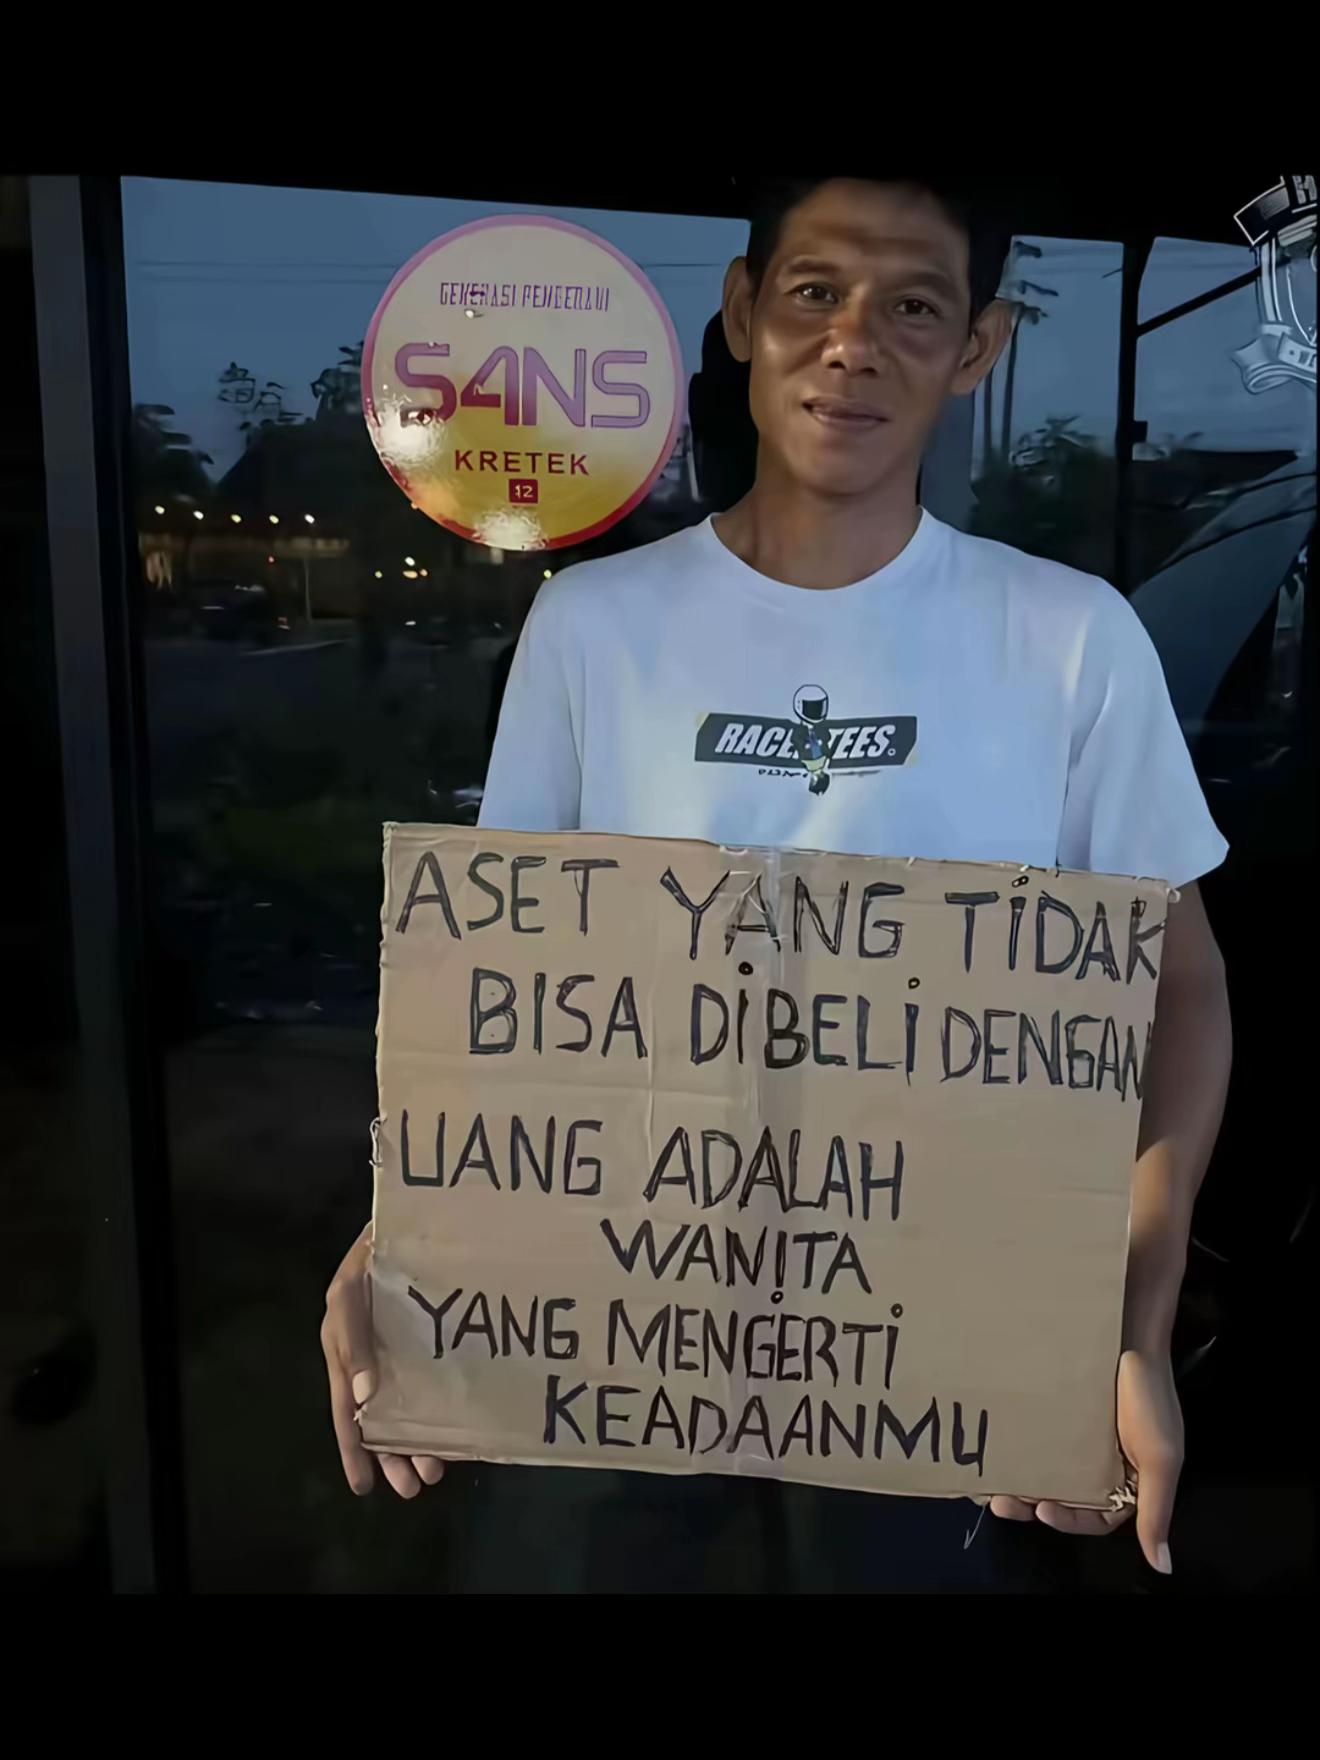 SANS
KRETEK
12
RACE TEES.
ASET YANG TIDAK
BISA DIBELI DENGAN
UANG ADALAH
WANITA
YANG MENGERTI
KEADAANMU